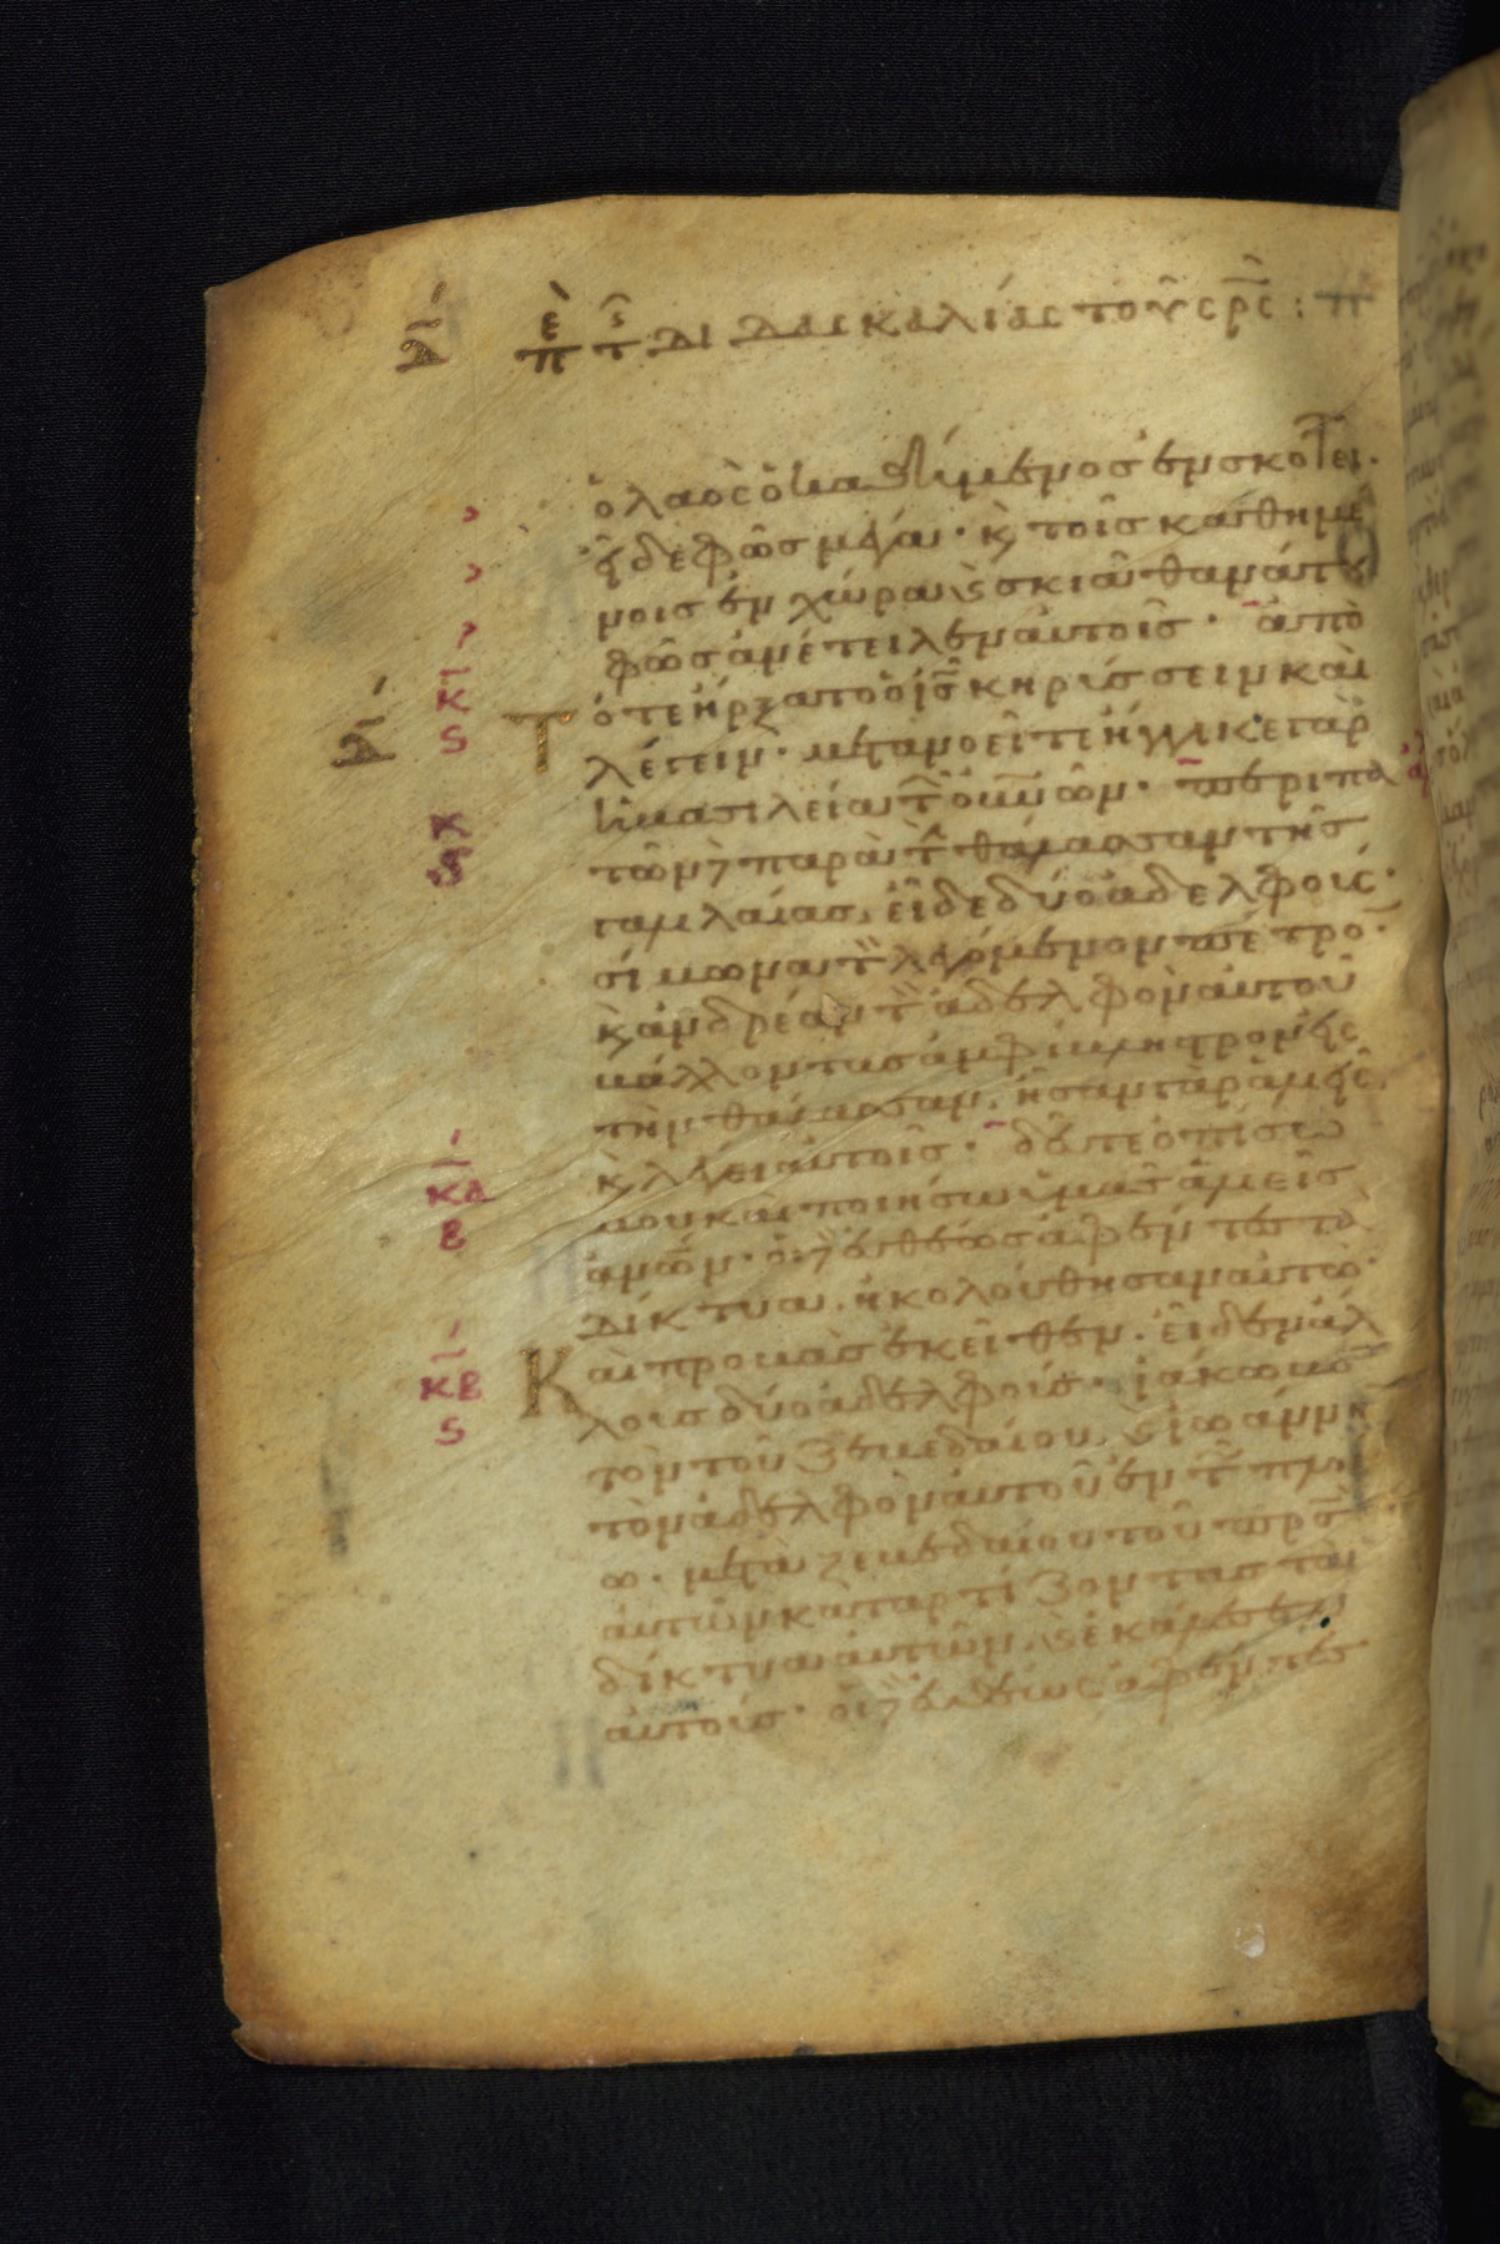 δ̄ ἐπ τ̂ διδασκαλίας τοῦ σρ̄ς :
ὁ λαὸς ὁ καθήμενος ἐν σκότει ·
εἶδε φῶς μέγα · κ̀ τοῖς καθημέ
νοις ἐν χώρα κ̀ σκιᾶ θανάτου
φῶς ἀνέτειλεν αὐτοῖς · ἀπὸ
κ
ς
δ̄
τότε ἤρξατο ὁ ις̄ κηρύσσειν καὶ
λέγειν · μετανοεῖτε ἤγγικε γὰρ
ἡ βασιλεία τ̂ οὐνῶν · περιπα
κ
τῶν δ̀ παρὰ τ̂ θάλασσαν τῆς
γαλιλαίας, εἶδε δύο ἀδελφούς ·
σίμωνα τ̀ λεγόμενον πέτρο ·
κ̀ ἀνδρέαν τ̀ ἀδελφὸν αὐτοῦ
βάλλοντας ἀμφίβληστρον εἰς
τὴν θάλασσαν, ἦσαν γὰρ ἁλιεῖς
κα
β
κ̀ λέγει αὐτοῖς · δεῦτε ὀπίσω
μου καὶ ποιήσω ὑμᾶς ἁλιεῖς
ἀνων · οἱ δ̀ εὐθέως ἀφέντες τὰ
δίκτυα, ἠκολούθησαν αὐτῶ ·
κβ
ς
Καὶ προβὰς ἐκεῖθεν · εἶδεν ἄλ
λους δύο ἀδελφούς · ἰάκωβο
τὸν τοῦ ζεβεδαίου, κ̀ ἰωάννη
τὸν ἀδελφὸν αὐτοῦ ἐν τ̂ πλοί
ω · μετὰ ζεβεδαίου τοῦ πρς̄
αὐτῶν καταρτίζοντας τὰ
δίκτυα αὐτῶν, κ̀ ἐκάλεσεν
αὐτούς · οἱ δ̀ εὐθέως ἀφέντες